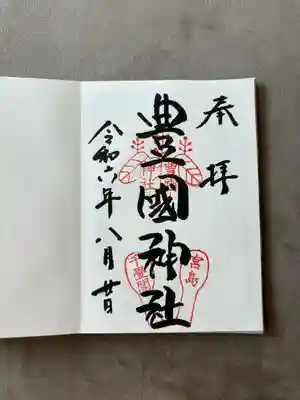 奉拝
豊國神社
令和六年八月廿日
宮島
千畳閣